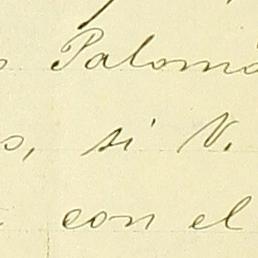 Palom
si V.
con el